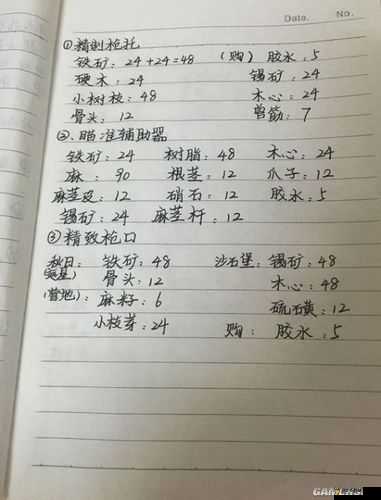 Date. No.
①精制枪托
铁矿：24+24=48 （购）胶水：5
硬木：24 锡矿：24
小树枝：48 木心：24
骨头：12 兽筋：7
②瞄准辅助器
铁矿：24 树脂：48 木心：24
麻：90 根茎：12 爪子：12
麻茎皮：12 硝石：12 胶水：5
锡矿：24 麻茎杆：12
③精致枪口
秋日：铁矿：48 沙石堡：锡矿：48
骨头：12 木心：48
（营地）：麻籽：6 硫磺：12
小枝芽：24 购：胶水：5